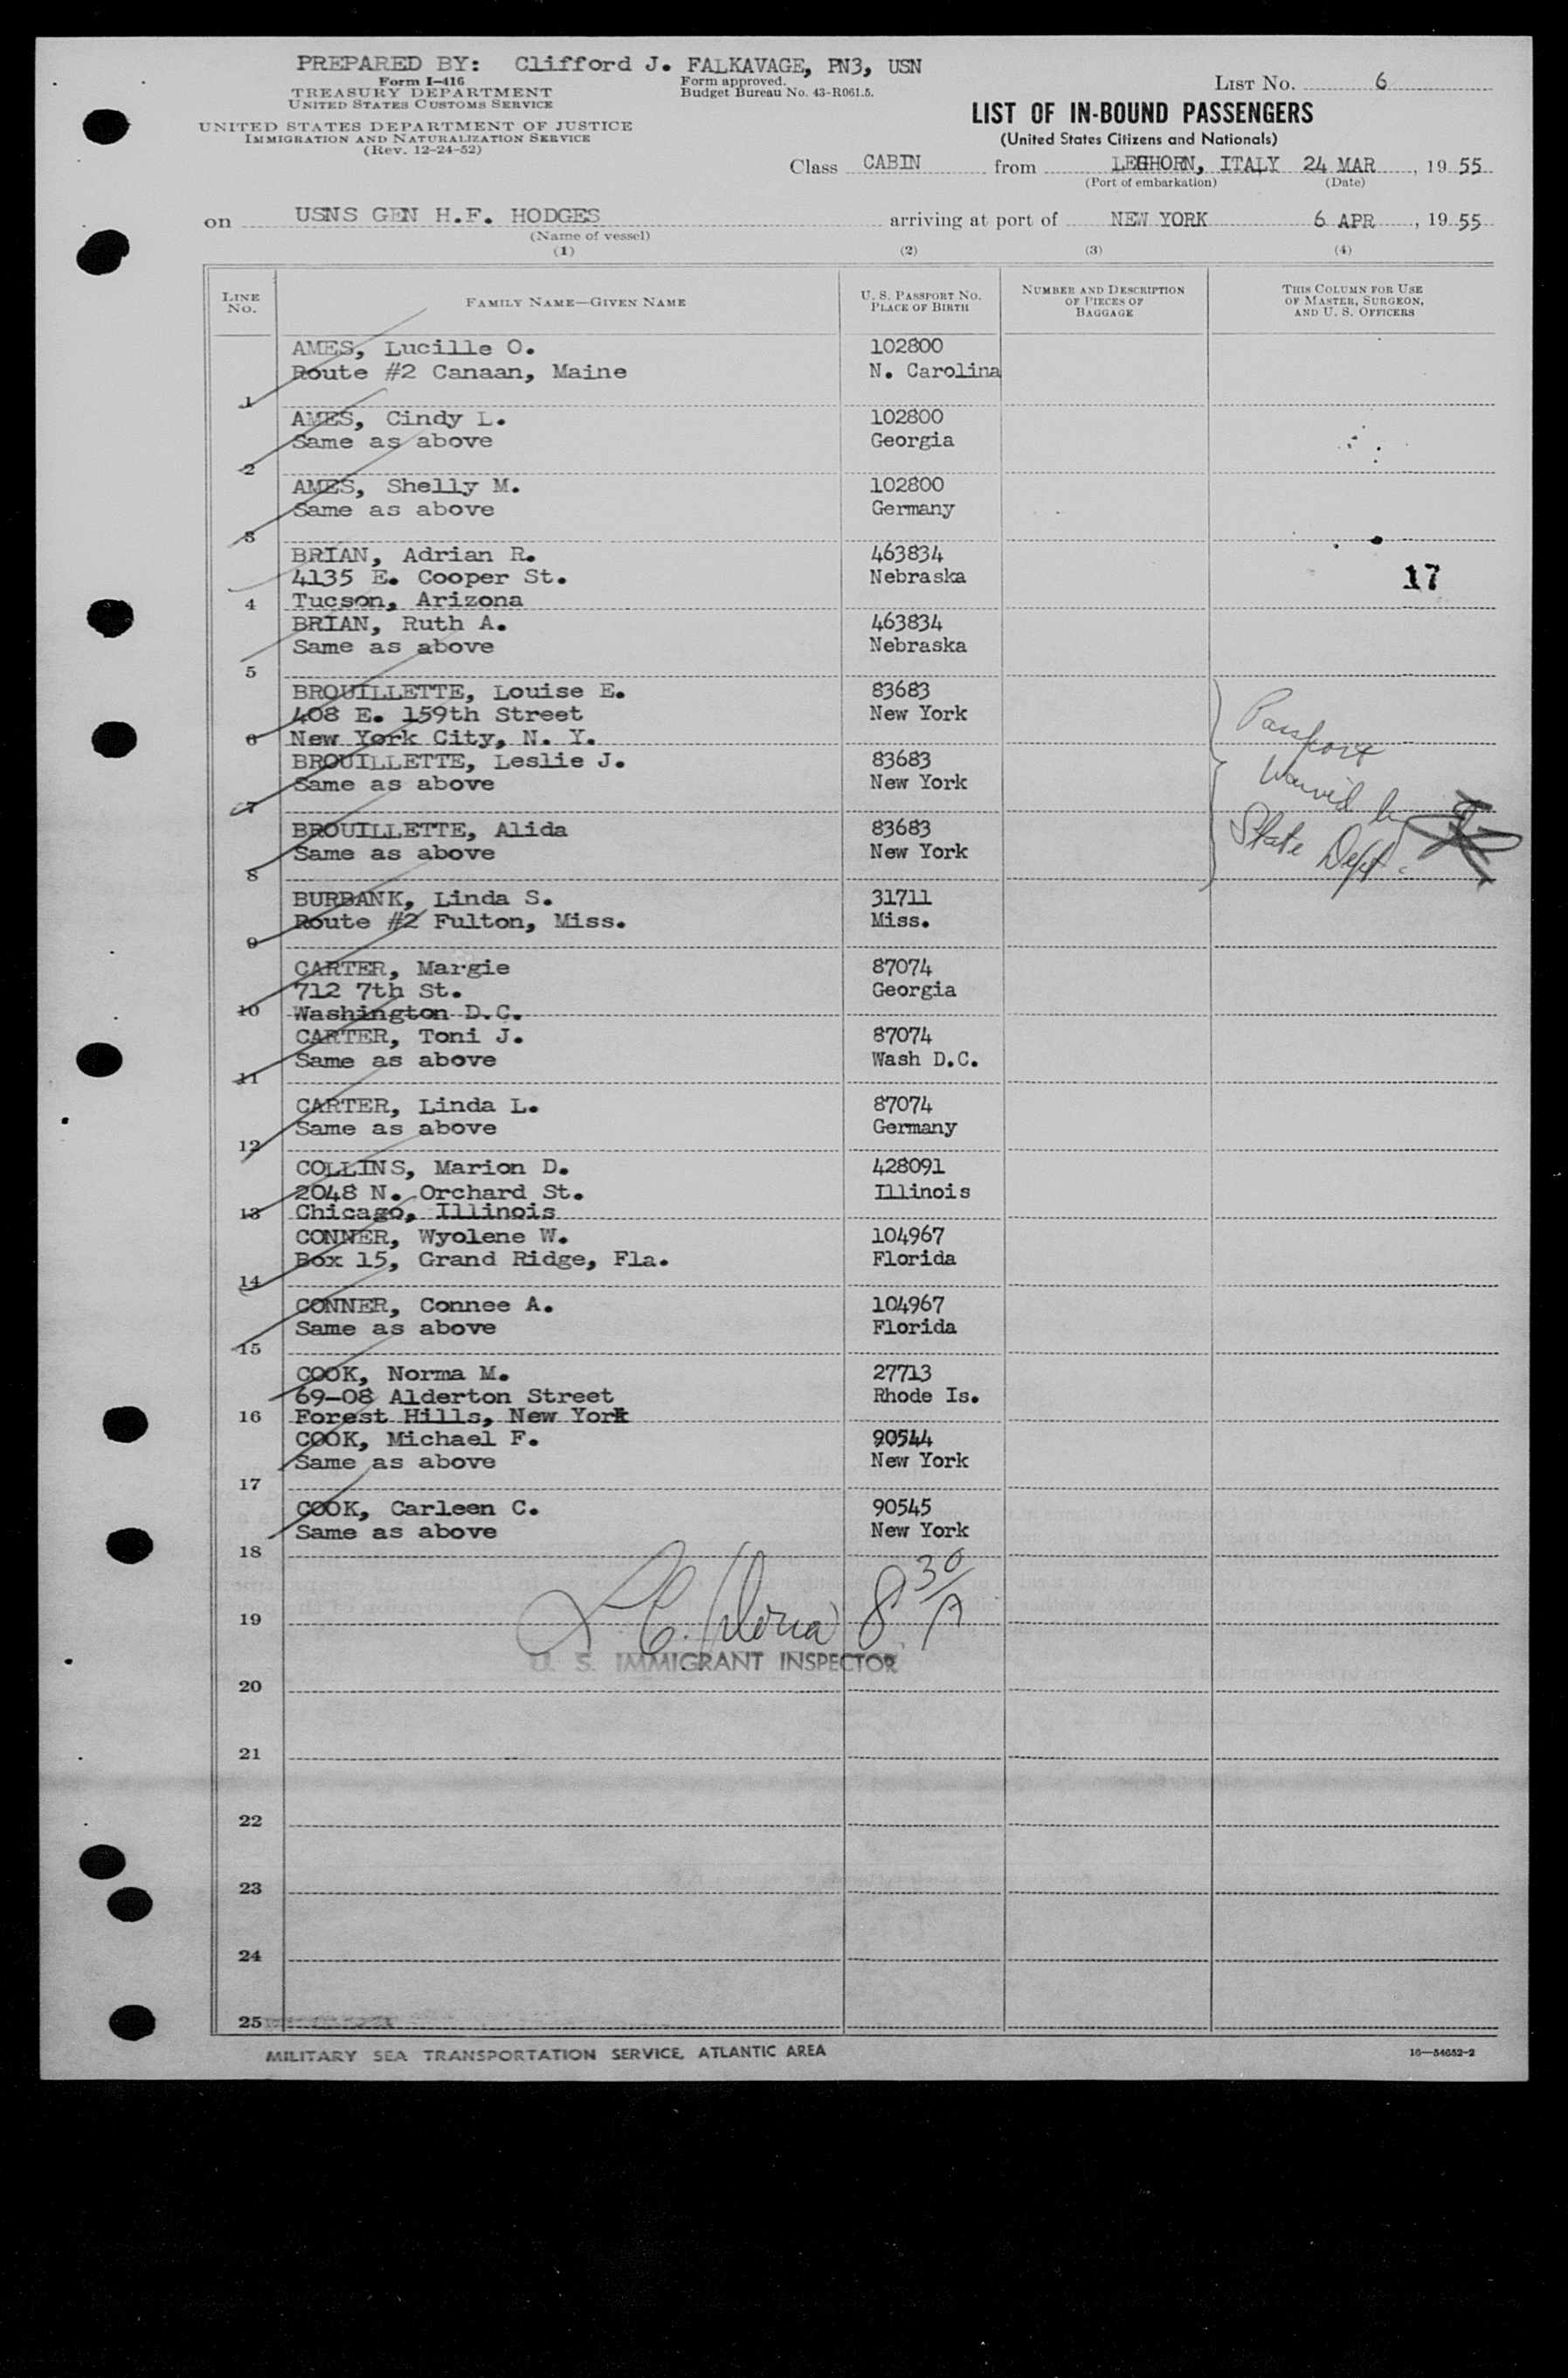 PREPARED BY: Clifford J. FALKAVAGE, PN3, USN
Form I-416
TREASURY DEPARTMENT
UNITED STATES CUSTOMS SERVICE
Form approved.
Budget Bureau No. 43-R061.5.
LIST NO. 6
UNITED STATES DEPARTMENT OF JUSTICE
IMMIGRATION AND NATURALIZATION SERVICE
(Rev. 12-24-52)
LIST OF IN-BOUND PASSENGERS
(United States Citizens and Nationals)
Class CABIN from LEGHORN, ITALY 24 MAR, 1955
(Port of embarkation) (Date)
on USNS GEN H.F. HODGES arriving at port of NEW YORK 6 APR, 1955
(Name of vessel)
(1) (2) (3) (4)
LINE NO.
FAMILY NAME—GIVEN NAME
U. S. PASSPORT NO.
PLACE OF BIRTH
NUMBER AND DESCRIPTION
OF PIECES OF
BAGGAGE
THIS COLUMN FOR USE
OF MASTER, SURGEON,
AND U. S. OFFICERS
AMES, Lucille O. 102800
Route #2 Canaan, Maine N. Carolina
1
AMES, Cindy L. 102800
Same as above Georgia
2
AMES, Shelly M. 102800
Same as above Germany
3
BRIAN, Adrian R. 463834
4135 E. Cooper St. Nebraska 17
4 Tucson, Arizona
BRIAN, Ruth A. 463834
Same as above Nebraska
5
BROUILLETTE, Louise E. 83683
408 E. 159th Street New York
6 New York City, N. Y.
BROUILLETTE, Leslie J. 83683
Same as above New York
7
BROUILLETTE, Alida 83683
Same as above New York
8
Passport
Waived by
State Dept.
BURBANK, Linda S. 31711
Route #2 Fulton, Miss. Miss.
9
CARTER, Margie 87074
712 7th St. Georgia
10 Washington D.C.
CARTER, Toni J. 87074
Same as above Wash D.C.
11
CARTER, Linda L. 87074
Same as above Germany
12
COLLINS, Marion D. 428091
2048 N. Orchard St. Illinois
13 Chicago, Illinois
CONNER, Wyolene W. 104967
Box 15, Grand Ridge, Fla. Florida
14
CONNER, Connee A. 104967
Same as above Florida
15
COOK, Norma M. 27713
69-08 Alderton Street Rhode Is.
16 Forest Hills, New York
COOK, Michael F. 90544
Same as above New York
17
COOK, Carleen C. 90545
Same as above New York
18
8 30/A
19
U. S. IMMIGRANT INSPECTOR
20
21
22
23
24
25
MILITARY SEA TRANSPORTATION SERVICE, ATLANTIC AREA
16—54652-2